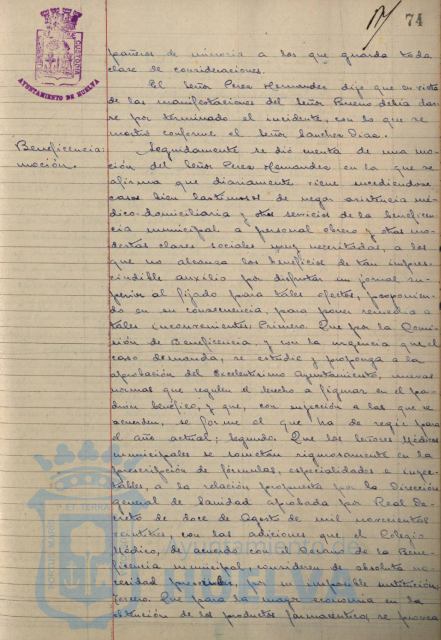 74
AYUNTAMIENTO DE HUELVA
pañeros de minoria a los que guarda toda
clase de consideraciones.
El Señor Perez Hernandez dijo que en vista
de las manifestaciones del Señor Bueno debia dar
se por terminado el incidente, con lo que se
mostró conforme el Señor Sanchez Diaz.
Beneficencia:
moción.
Seguidamente se dió cuenta de una mo
ción del Señor Perez Hernandez en la que se
afirma que diariamente viene sucediendose
casos bien lastimosos de negar asistencia mé
dico-domiciliaria y otros servicios de la benefi
cencia municipal a personal obrero y otras mo
destas clases sociales muy necesitadas, a los
que no alcanza los beneficios de tan impres
cindible auxilio por disfrutar un jornal su
perior al fijado para tales efectos, proponien
do en su consecuencia, para poner remedio a
tales inconvenientes: Primero. Que por la Comi
sión de Beneficencia, y con la urgencia que el
caso demanda, se estudie y proponga a la
aprobación del Excelentisimo Ayuntamiento, nuevas
normas que regulen el derecho a figurar en el pa
drón benéfico, y que, con sujeción a las que se
acuerden, se forme el que ha de regir para
el año actual; Segundo. Que los Señores Médicos
municipales se sometan rigurosamente en la
prescripción de fórmulas, especialidades e inyec
tables, a la relación propuesta por la Dirección
general de Sanidad aprobada por Real De
creto de doce de Agosto de mil novecientos
veintiseis, con las adiciones que el Colegio
Médico, de acuerdo con el Decano de la Bene
ficencia municipal, consideren de absoluta ne
cesidad prescribir, por su imposible sustitución;
Tercero. Que para la mayor economia en la
obtención de los productos farmaceuticos, se provea